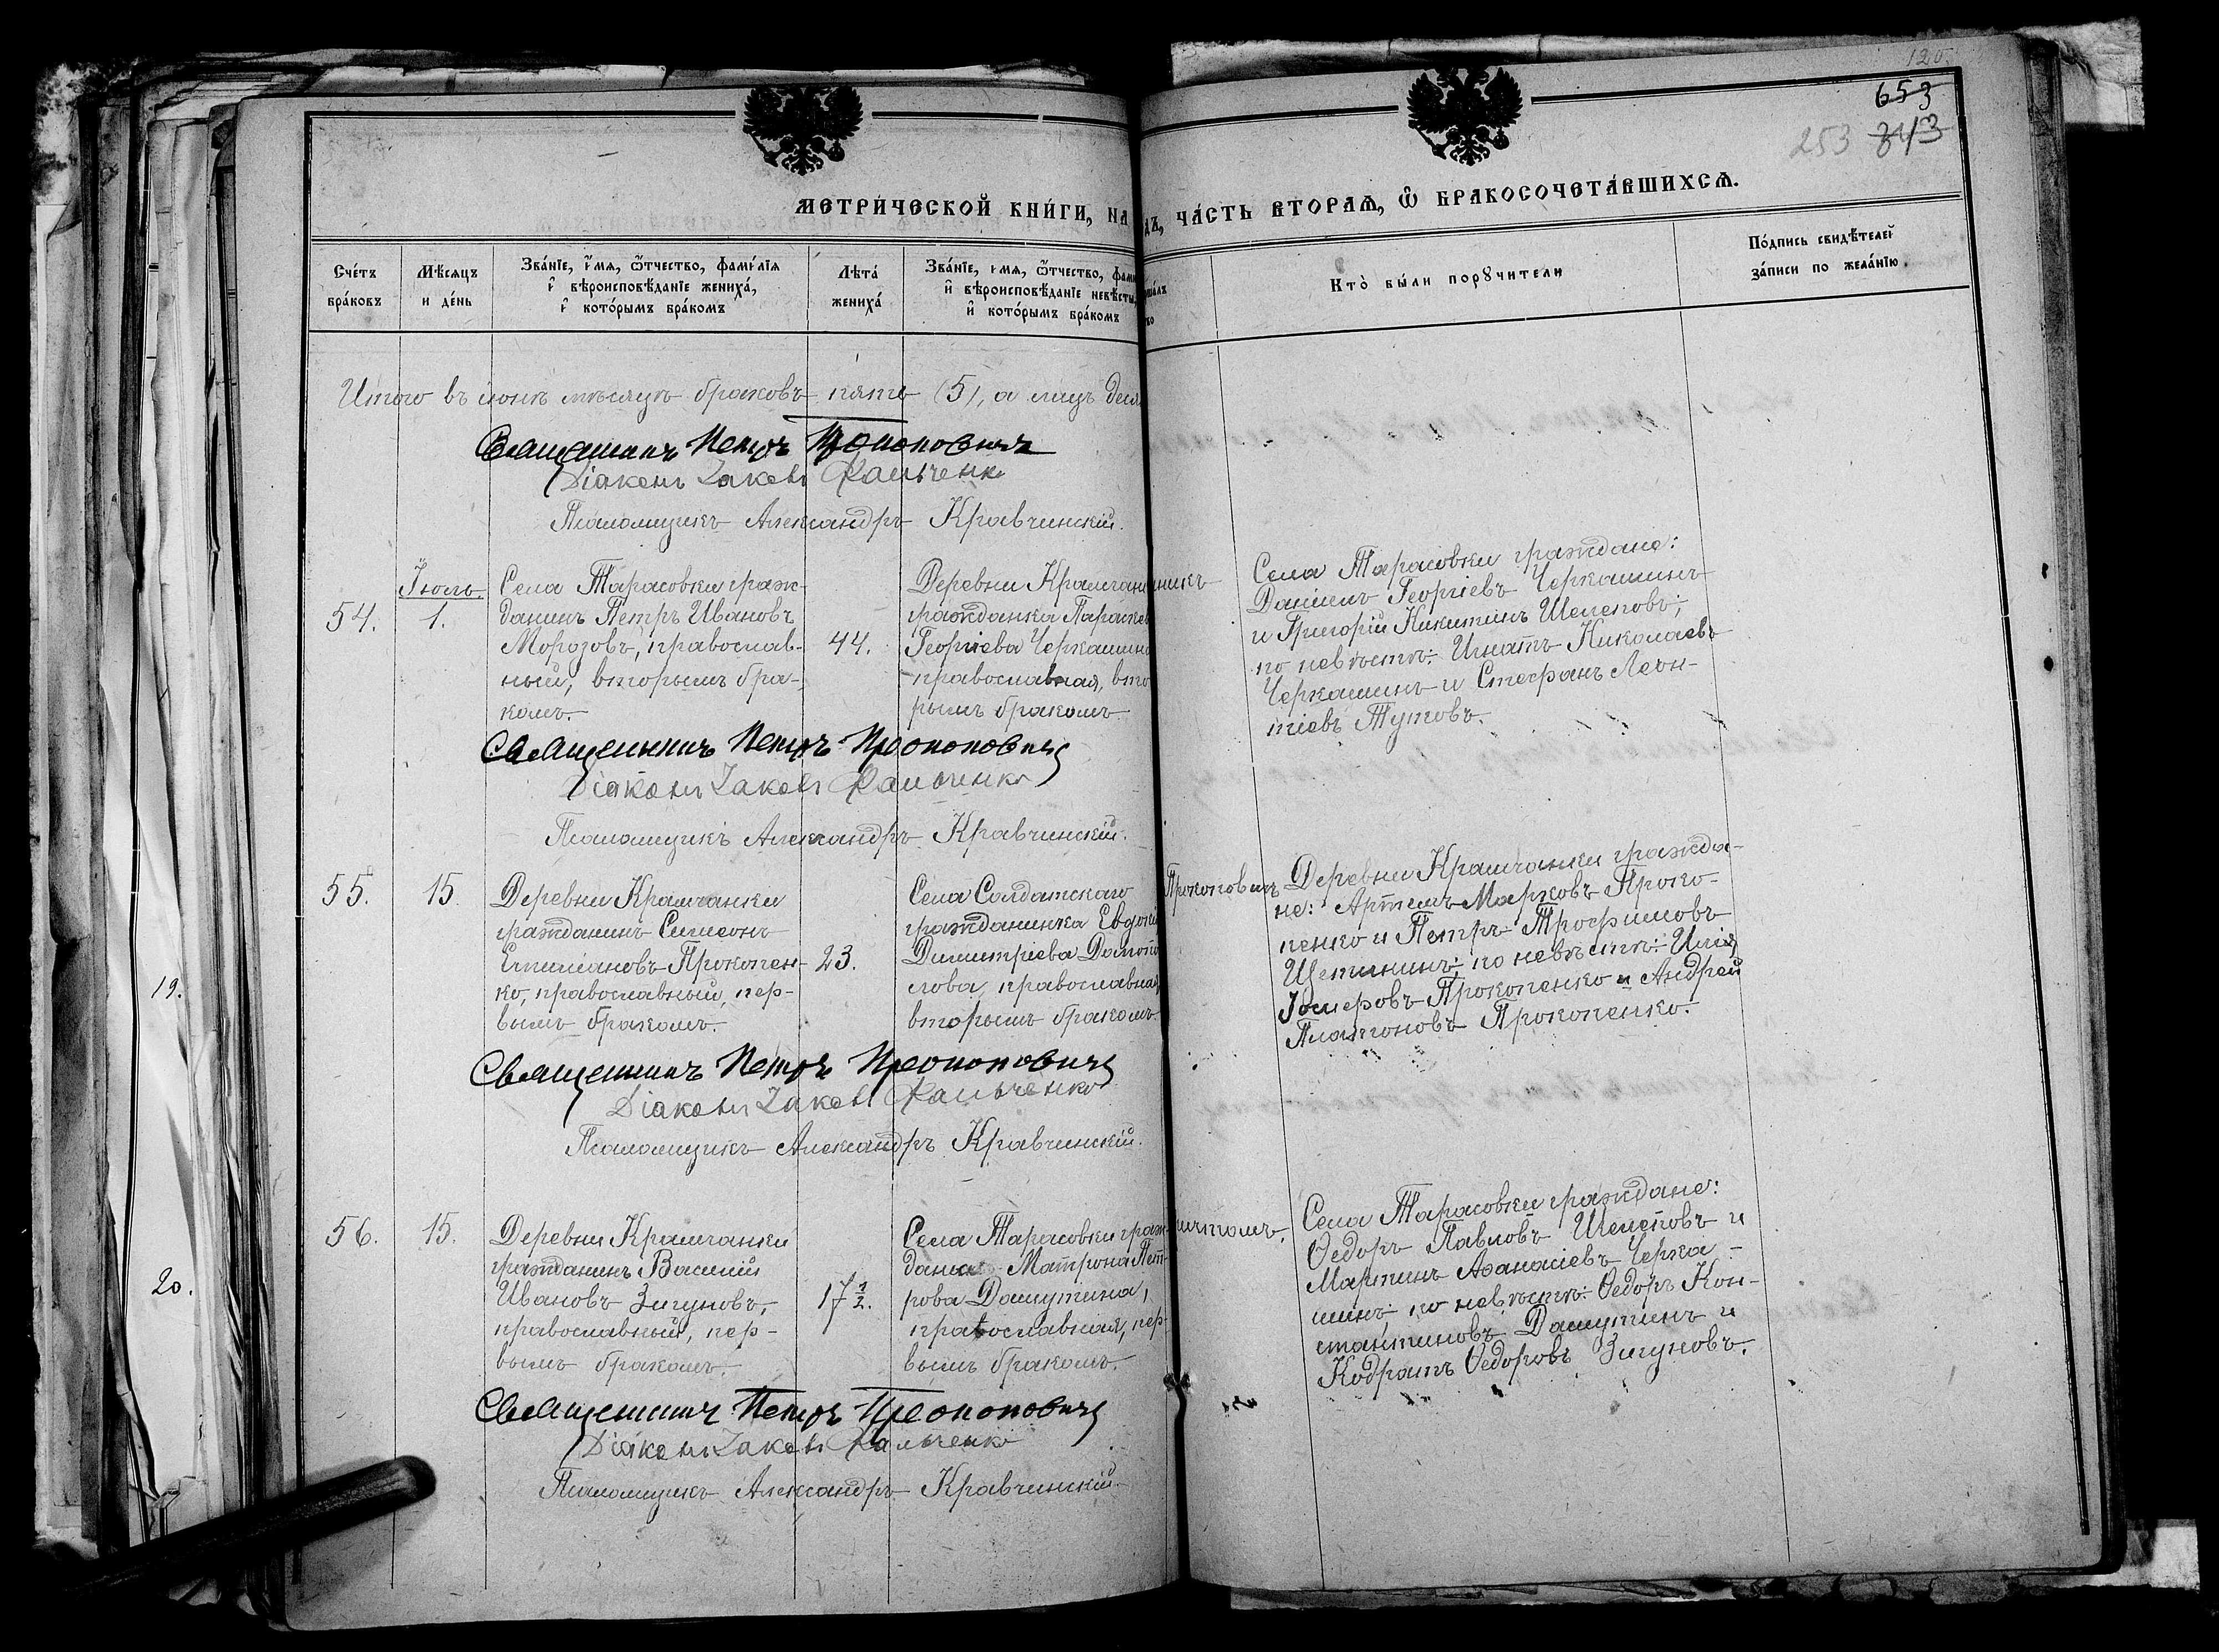 120.
653
253 343
МЕТРИ́ЧЕСКОЙ КНИ́ГИ, НА
ДЪ, ЧА́СТЬ ВТОРАѦ, Ѿ БРАКОСОЧЕТА́ВШИХСѦ.
Сче́тъ
бра́ковъ
Мѣ́сѧцъ
и де́нь
Зва́нїе, и҆́мѧ, ѻ҆́тчество, фамѝлїѧ
и҆ вѣроисповѣ́данїе жениха́,
и҆ кото́рымъ бра́комъ
Лѣта́
жениха́
Зва́нїе, и҆мѧ, ѻ҆́тчество, фами
и҆ вѣроисповѣ́данїе невѣ́сты,
и҆ кото́рымъ бра́комъ
Кто̀ бы́ли порꙋчители
По́дпись свидѣ́телей
за́писи по жела́нїю
Итого въ іюнѣ мѣсяцѣ браковъ пять (5), а лицъ деся
Священникъ Петръ Прокоповичъ
Діаконъ Іаковъ Фальченко
Псаломщикъ Александръ Кравчинскій.
54.
Іюль.
1.
Села Тарасовки граж-
данинъ Петръ Ивановъ
Морозовъ, православ-
ный, вторымъ бра-
комъ.
44.
Деревни Крамчан
гражданка Параскев
Георгіева Черкашина
православная, вто
рымъ бракомъ.
Села Тарасовки граждане:
Даніилъ Георгіевъ Черкашинъ
и Григорій Никитинъ Шелеповъ;
по невѣстѣ: Игнатъ Николаевъ
Черкашинъ и Стефанъ Леон-
тіевъ Тутовъ.
Священникъ Петръ Прокоповичъ
Діаконъ Іаковъ Фальченко
Псаломщикъ Александръ Кравчинскій.
55.
15.
Деревни Крамчанки
гражданинъ Симеонъ
Емиліановъ Прокопен-
ко, православный, пер-
вымъ бракомъ.
23.
Села Солдатскаго
гражданинка Евдокі
Димитріева
православная
вторымъ бракомъ.
Прокоповичъ
Деревни Крамчанки гражда-
не: Артемъ Марковъ Проко-
пенко и Петръ Трофимовъ
Щетининъ; по невѣстѣ: Илія
Прокопенко и Андрей
Платоновъ Прокопенко.
Священникъ Петръ Прокоповичъ
Діаконъ Іаковъ Фальченко
Псаломщикъ Александръ Кравчинскій.
19.
20.
56.
15.
Деревни Крамчанки
гражданинъ Василій
Ивановъ Зигуновъ,
православный, пер-
вымъ бракомъ.
17 1/2.
Села Тарасовки граж-
данка Матрона Пет-
рова Дашутина,
православная, пер-
вымъ бракомъ.
Села Тарасовки граждане:
Ѳедоръ Павловъ Шелеповъ и
Мартинъ Аѳанасіевъ Черка-
шинъ; по невѣстѣ: Ѳедоръ Кон-
стантиновъ Дашутинъ и
Кодратъ Ѳедоровъ Зигуновъ.
Священникъ Петръ Прокоповичъ
Діаконъ Іаковъ Фальченко
Псаломщикъ Александръ Кравчинскій.